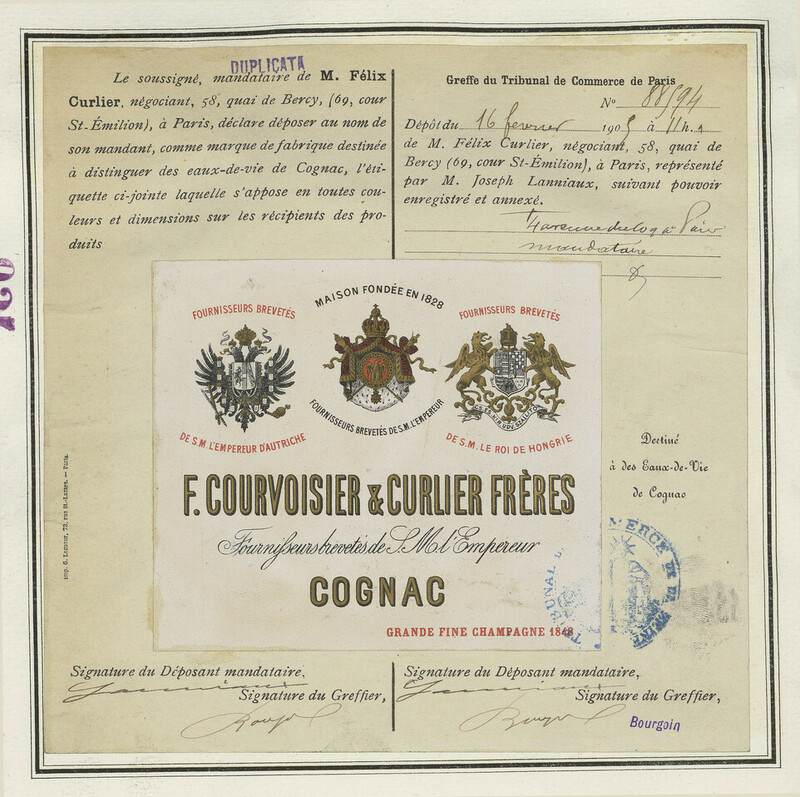 DUPLICATA
Le soussigné, mandataire de M. Félix
Curlier, négociant, 58, quai de Bercy, (69, cour
St-Émilion), à Paris, déclare déposer au nom de
son mandant, comme marque de fabrique destinée
à distinguer des eaux-de-vie de Cognac, l'éti-
quette ci-jointe laquelle s'appose en toutes cou-
leurs et dimensions sur les récipients des pro-
duits
Greffe du Tribunal de Commerce de Paris
No 88594
Dépôt du 16 fevrier 1905 à 11 h.
de M. Félix Curlier, négociant, 58, quai de
Bercy (69, cour St-Émilion), à Paris, représenté
par M. Joseph Lanniaux, suivant pouvoir
enregistré et annexé.
mandataire
FOURNISSEURS BREVETÉS
DE S.M. L'EMPEREUR D'AUTRICHE
MAISON FONDÉE EN 1828
FOURNISSEURS BREVETÉS DE S.M. L'EMPEREUR
FOURNISSEURS BREVETÉS
DE S.M. LE ROI DE HONGRIE
F. COURVOISIER & CURLIER FRÈRES
Fournisseurs brevetés de S.M. l'Empereur
COGNAC
GRANDE FINE CHAMPAGNE 1848
Destiné
à des Eaux-de-Vie
de Cognac
TRIBUNAL D
MERCE DE LA SEINE
Signature du Déposant mandataire,
Signature du Greffier,
Signature du Déposant mandataire,
Signature du Greffier,
Bourgoin